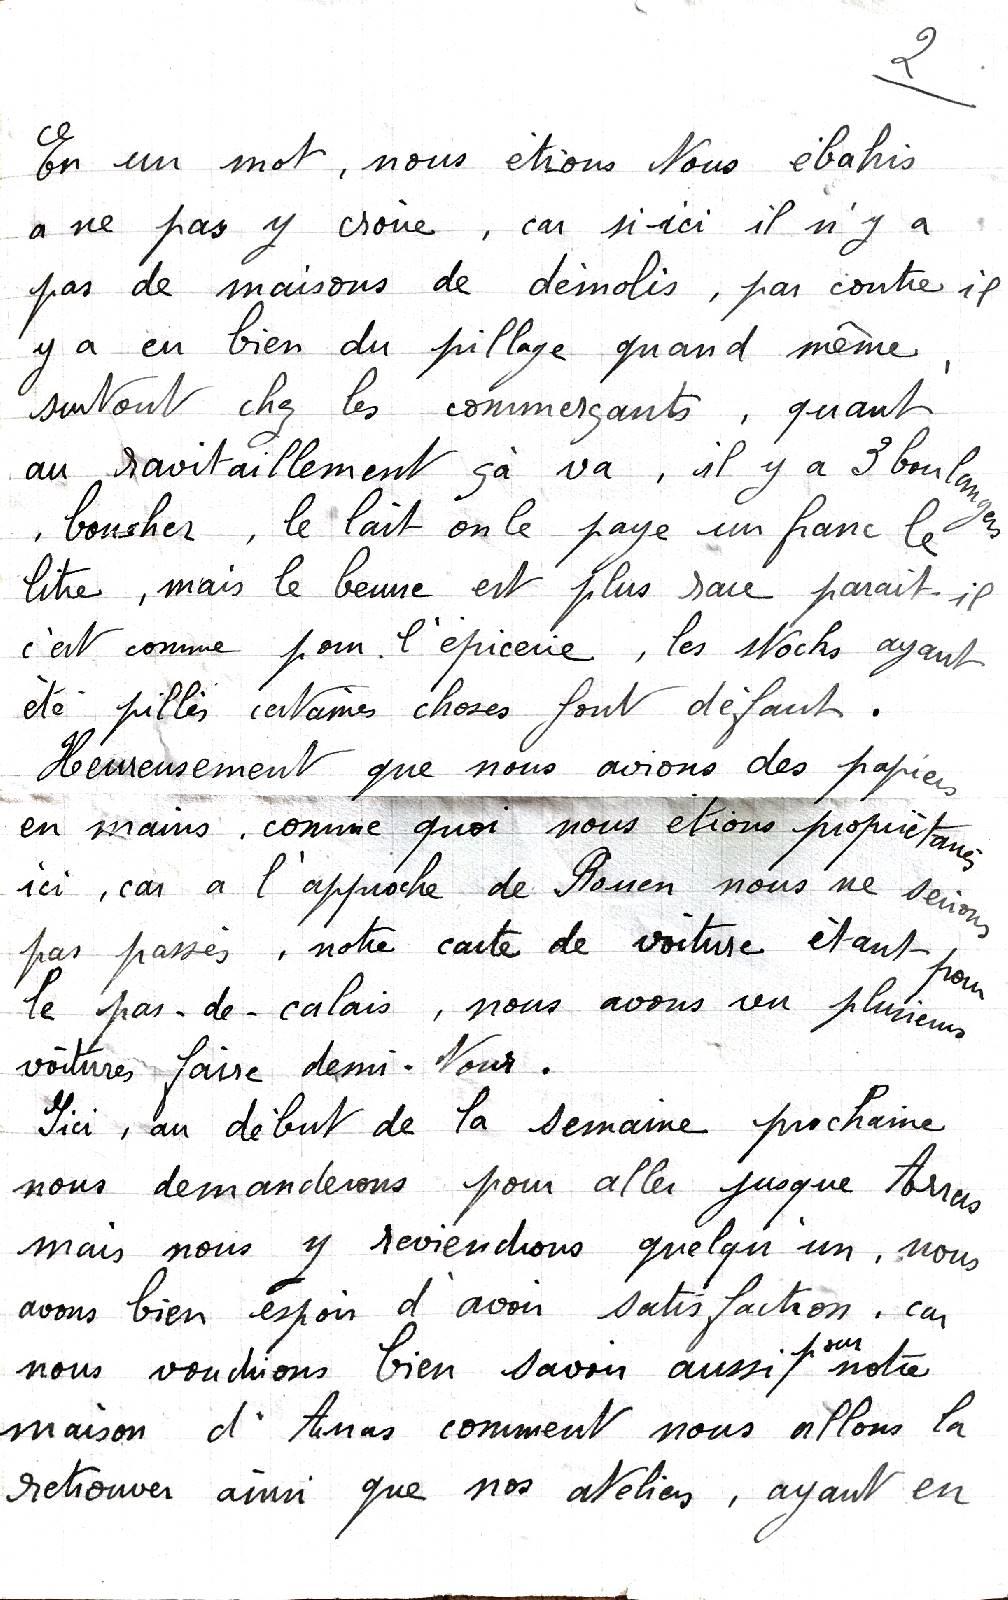 2
En un mot, nous étions tous ébahis
a ne pas y croire, car si ici il n'y a
pas de maisons de démolis, par contre il
y a eu bien du pillage quand même,
surtout chez les commerçants, quant
au ravitaillement çà va, il y a 3 boulangers
, boucher, le lait on le paye un franc le
litre, mais le beurre est plus rare parait-il
c'est comme pour l'épicerie, les stocks ayant
été pillés certaines choses font défaut.
Heureusement que nous avions des papiers
en mains, comme quoi nous étions propriétaires
ici, car a l'approche de Rouen nous ne serions
pas passés, notre carte de voiture étant pour
le pas-de-calais, nous avons vu plusieurs
voitures faire demi-tour.
Ici, au début de la semaine prochaine
nous demanderons pour aller jusque Arras
mais nous y reviendrons quelqu'un, nous
avons bien espoir d'avoir satisfaction, car
nous voudrions bien savoir aussi pour notre
maison d'Arras comment nous allons la
retrouver ainsi que nos ateliers, ayant en